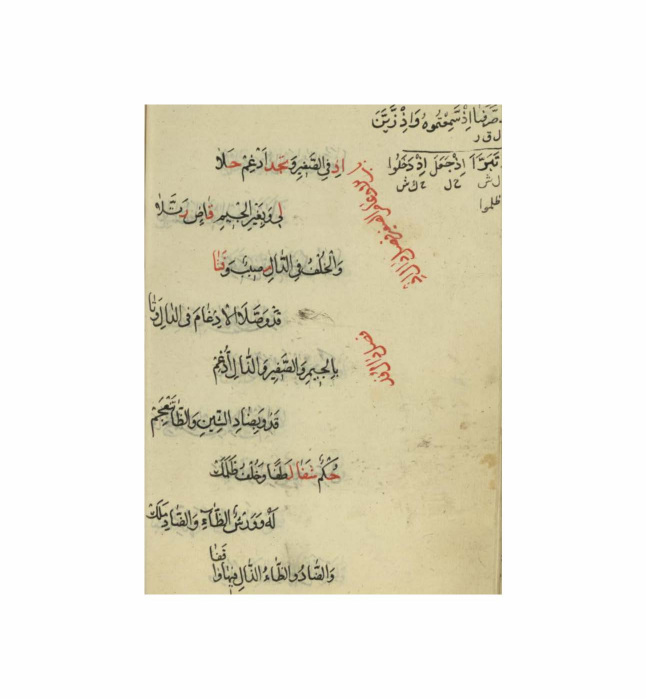 صَرَفْنَا اِذْ سَمِعْتُمُوهُ وَاِذْ زَيَّنَ
ل ق ر
تَبَرَّأَ اِذْ جَعَلَ اِذْ دَخَلُوا
اِذ فِى الصَّفِيرِ وَتَجِد اَدْغِمْ حَلَا
لِى وَبِغَيْرِ الْجِيمِ قَاضٍ رَتَّلَا
وَالْخُلْفُ فِى الدَّالِ مصِيبٌ وَفَتَا
قَدْ وَصَّلَا الْاِدْغَامَ فِى الدَالِ وَتَا
بِالْجِيمِ وَالصَّفِيرِ وَالذَّالِ اُدْغِمْ
قَدْ وَبِضَادِ الشِّينِ وَالظَّا تَنْعَجِمْ
حُكْمٌ شَفَا لَفظًا وَخُلْفُ ظَلَمَكْ
لَهُ وَوَرْشُ الظَّاءِ وَالضَّادِ مَلَكْ
وَالضَّادُ وَالظَّاءُ الذَّالِ فِيهَا وَافَقَا